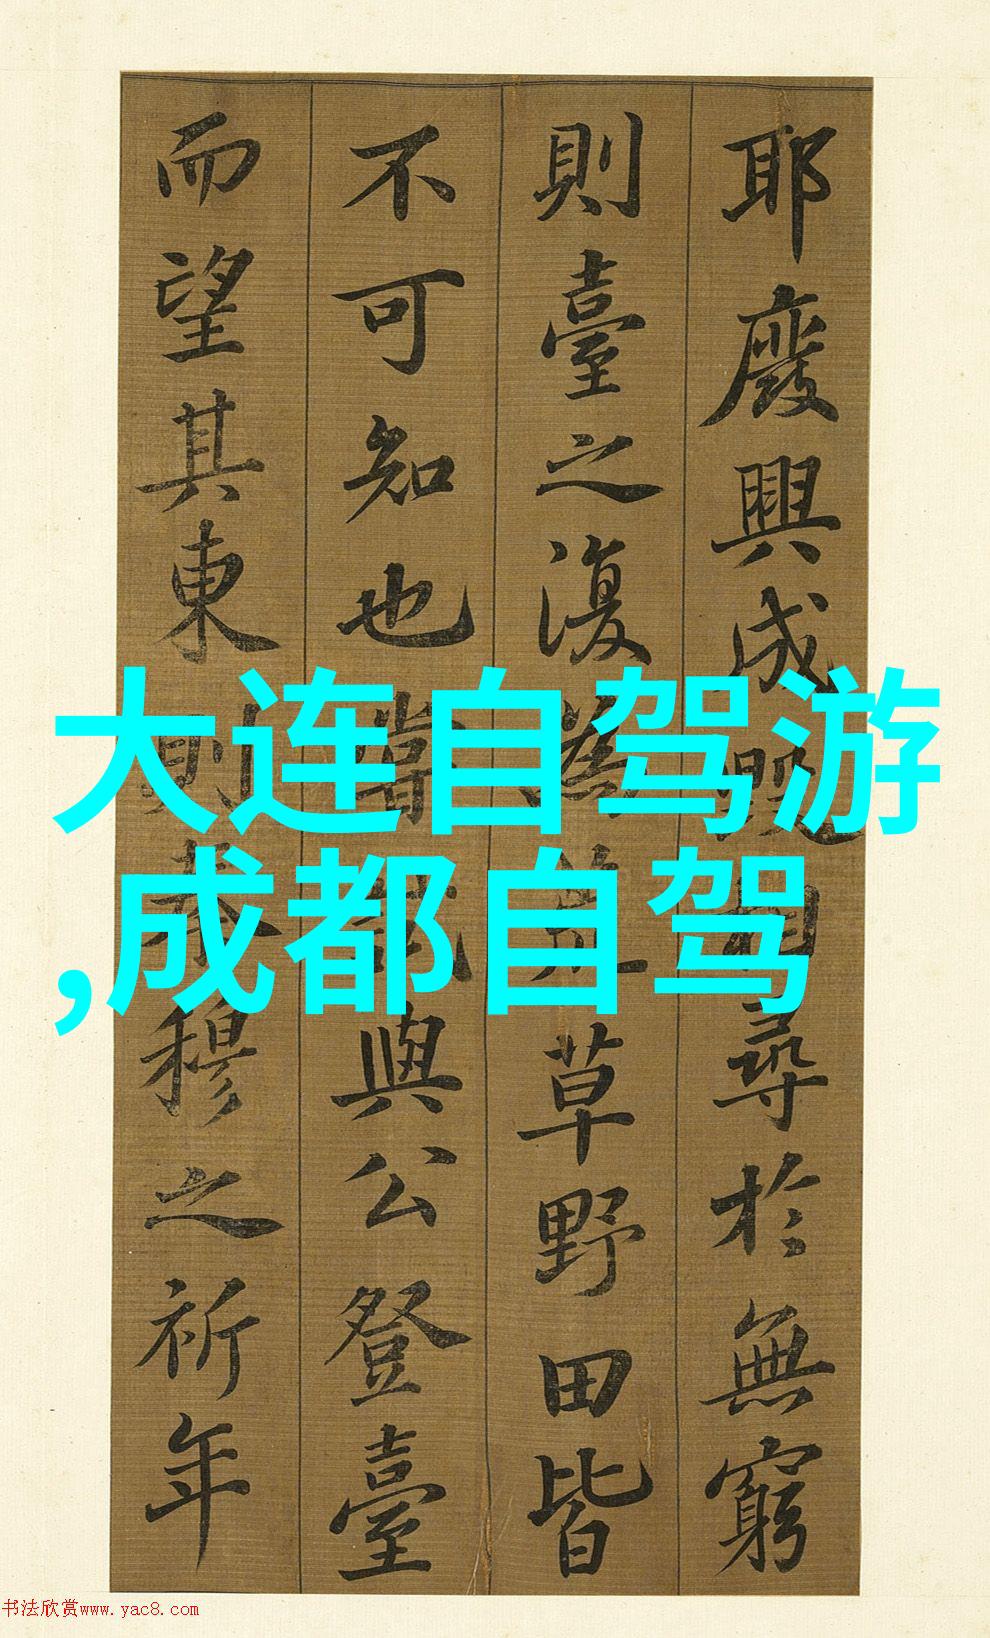 耶廢興成毀相尋於無窮
則臺之復為荒草野田皆
不可知也嘗試與公登臺
而望其東則秦穆之祈年
大连自驾游
,成都自驾
书法欣赏www.yac8.com